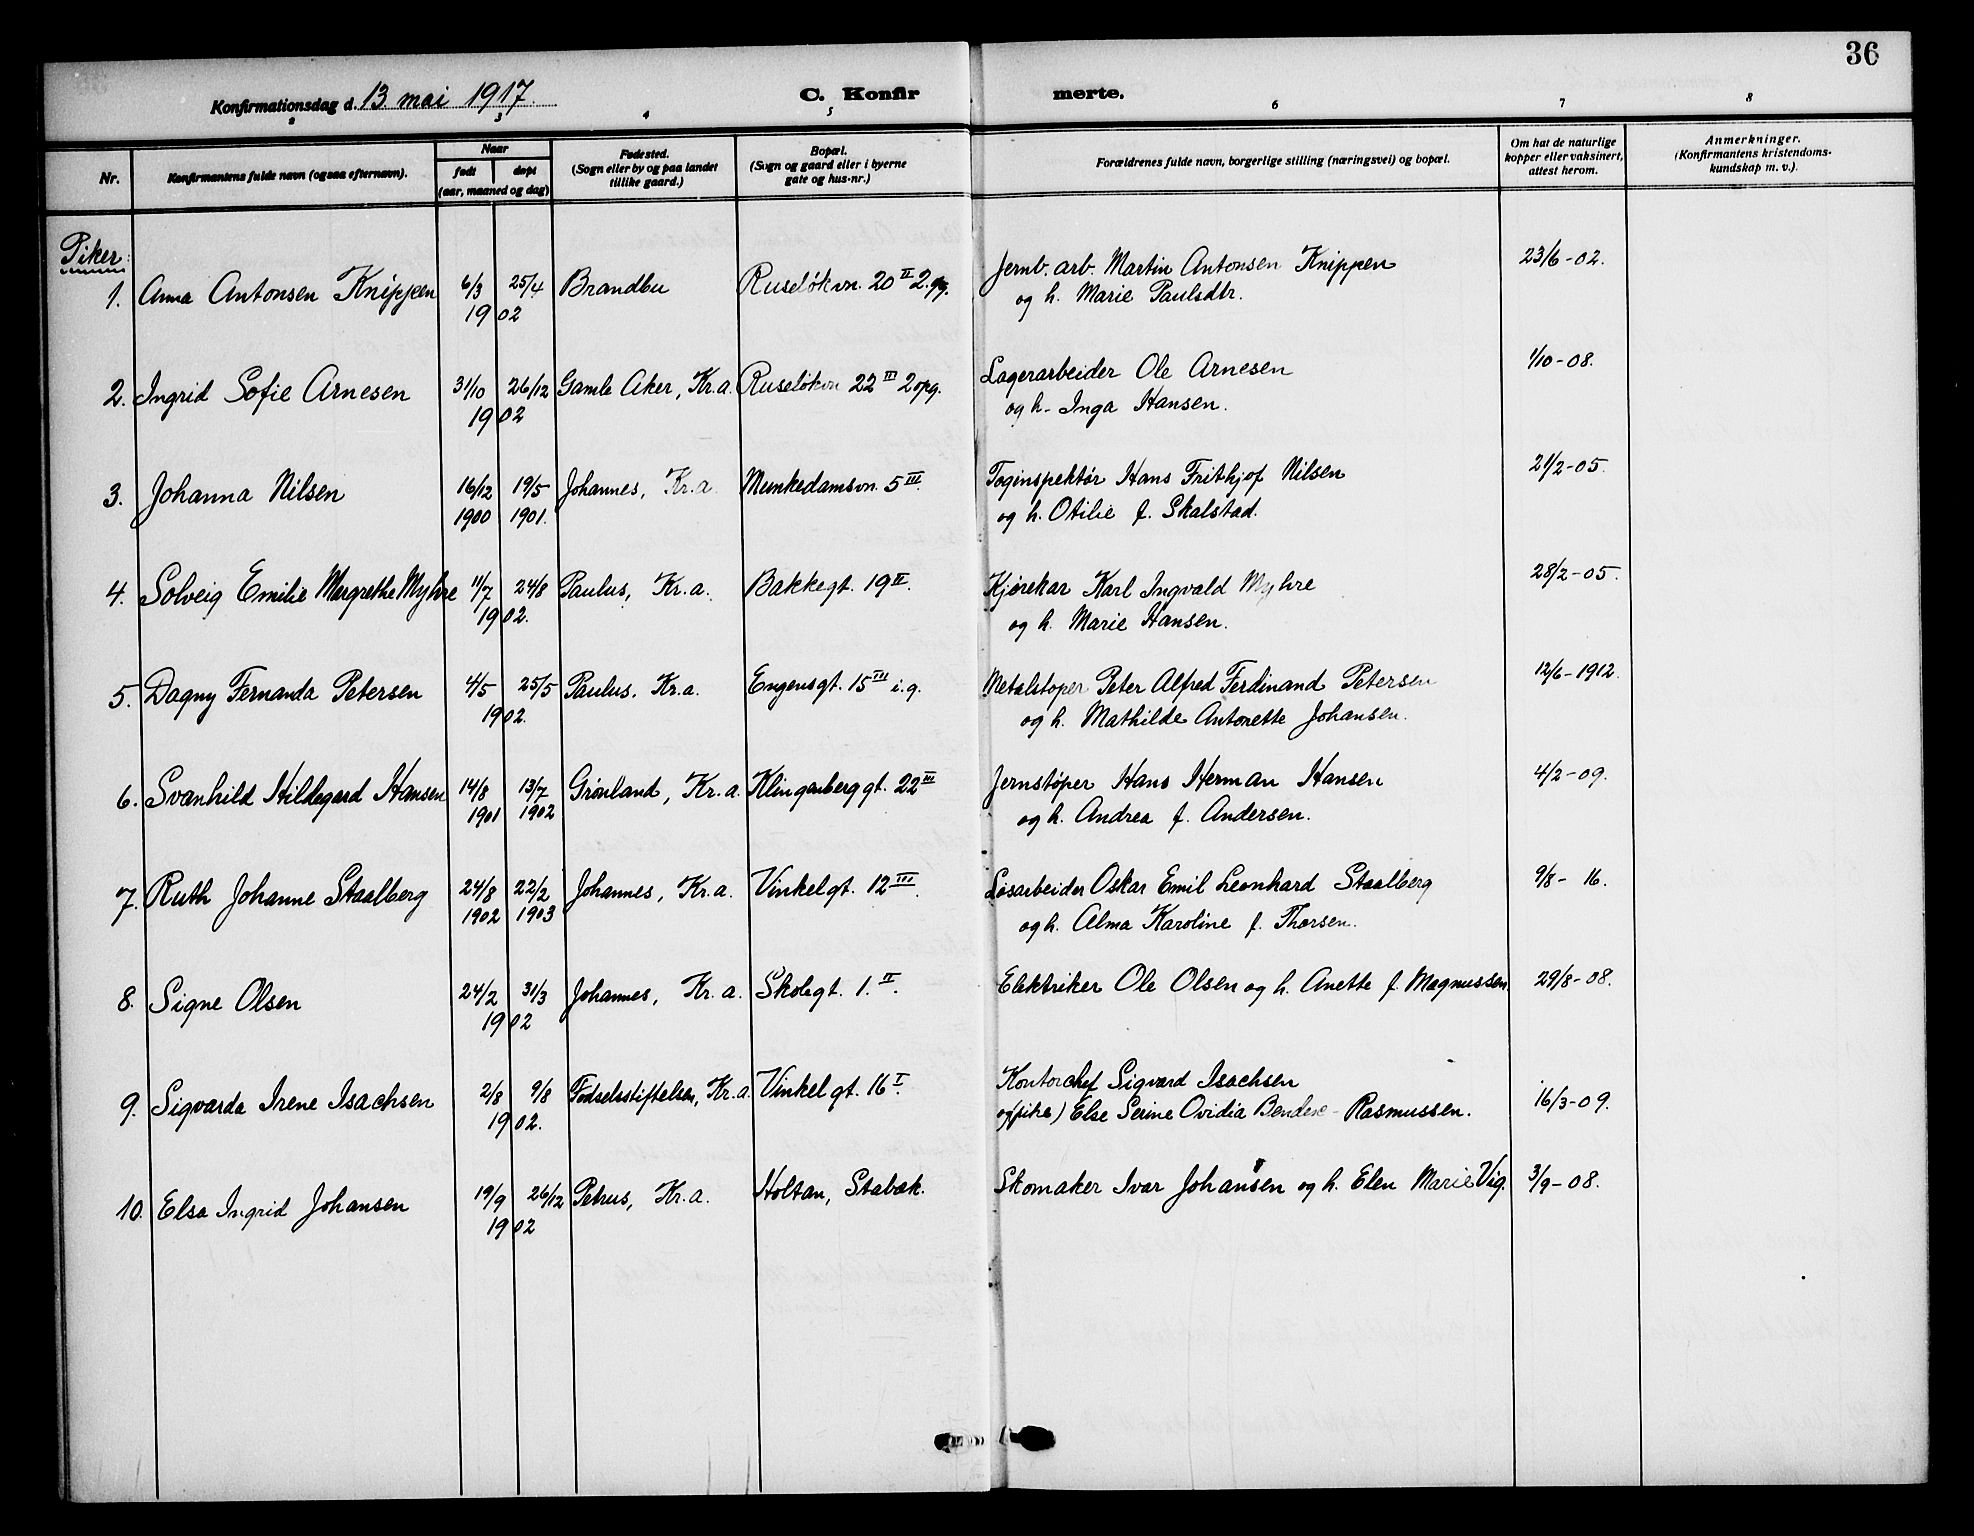 36
Konfirmationsdag d. 13 mai 1917.
C. Konfirmerte.
2 3 4 5 6 7 8
Nr.
Konfirmantens fulde navn (ogsaa efternavn).
Naar
født døpt
(aar, maaned og dag)
Fødested.
(Sogn eller by og paa landet
tillike gaard.)
Bopæl.
(Sogn og gaard eller i byerne
gate og hus-nr.)
Forældrenes fulde navn, borgerlige stilling (næringsvei) og bopæl.
Om hat de naturlige
kopper eller vaksinert,
attest herom.
Anmerkninger.
(Konfirmantens kristendoms-
kundskap m. v.).
Piker:
1. Anna Antonsen Knippen 6/3 25/4 Brandbu Ruseløkvn. 20 II 2. Jernb. arb. Martin Antonsen Knippen 23/6-02.
1902 og h. Marie Paulsdtr.
2. Ingrid Sofie Arnesen 31/10 26/12 Gamle Aker, Kr.a. Ruseløkvn 22 III 2opg. Lagerarbeider Ole Arnesen 1/10-08.
1902 og h. Inga Hansen.
3. Johanna Nilsen 16/12 19/5 Johannes, Kr.a. Munkedamsvn. 5 III. Toginspektør Hans Frithjof Nilsen 21/2-05.
1900 1901. og h. Otilie f. Skalstad.
4. Solveig Emilie Margrethe Myhre 11/7 24/8 Paulus, Kr.a. Bakkegt. 19 II. Kjørekar Karl Ingvald Myhre 28/2-05.
1902. og h. Marie Hansen.
5. Dagny Fernanda Petersen 4/5 25/5 Paulus, Kr.a. Engensgt. 15 III i.g. Metalstøper Peter Alfred Ferdinand Petersen 12/6-1912.
1902. og h. Mathilde Antonette Johansen.
6. Svanhild Hildegard Hansen 14/8 13/7 Grønland, Kr.a. Klingenberggt. 22 III Jernstøper Hans Herman Hansen 4/2-09.
1901 1902 og h. Andrea f. Andersen.
7. Ruth Johanne Staalberg 24/8 22/2 Johannes, Kr.a. Vinkelgt. 12 III. Løsarbeider Oskar Emil Leonhard Staalberg 9/8- 16.
1902 1903 og h. Alma Karoline f. Thorsen.
8. Signe Olsen 24/2 31/3 Johannes, Kr.a. Skolegt. 1. II. Elektriker Ole Olsen og h. Anette f. Magnussen. 29/8-08.
1902
9. Sigvarda Irene Isachsen 2/8 9/8 Fødselsstiftelsen, Kr.a. Vinkelgt. 16 I. Kontorchef Sigvard Isachsen
1902. og (pike) Else Serine Ovidia Rasmussen. 16/3-09.
10. Elsa Ingrid Johansen 19/9 26/12 Petrus, Kr.a. Holtan, Stabæk. Skomaker Ivar Johansen og h. Elen Marie Vig. 3/9-08.
1902